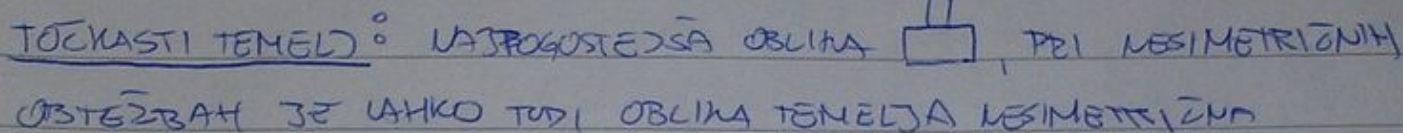 TOČKASTI TEMELJ: NAJPOGOSTEJŠA OBLIKA , PRI NESIMETRIČNIH
OBTEŽBAH JE LAHKO TUDI OBLIKA TEMELJA NESIMETRIČNA